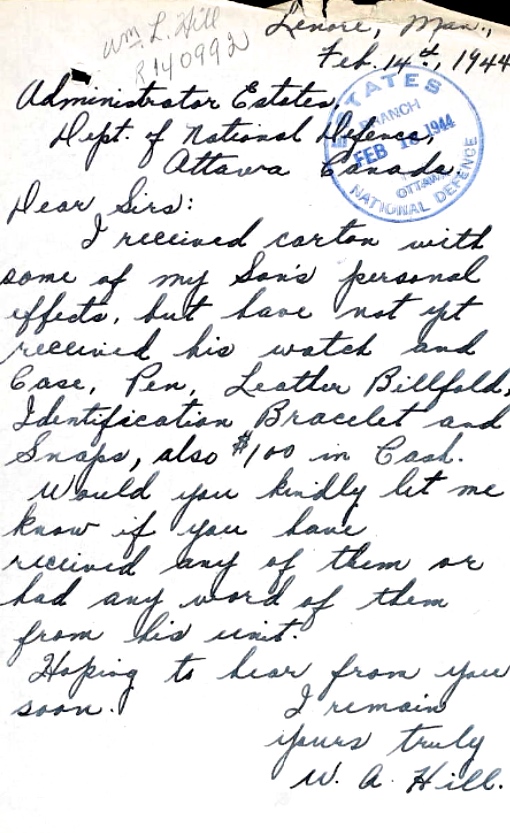 Wm. L. Hill
R140992
Lenore, Man.,
Feb. 14th, 1944
Administrator Estates,
Dept. of National Defence,
Ottawa Canada.
ESTATES
BRANCH
FEB 18 1944
OTTAWA
NATIONAL DEFENCE
Dear Sirs:
I received carton with
some of my Son's personal
effects, but have not yet
received his watch and
Case, Pen, Leather Billfold,
Identification Bracelet and
Snaps, also $100 in Cash.
Would you kindly let me
know if you have
received any of them or
had any word of them
from his unit.
Hoping to hear from you
soon.
I remain
yours truly
W. A. Hill.